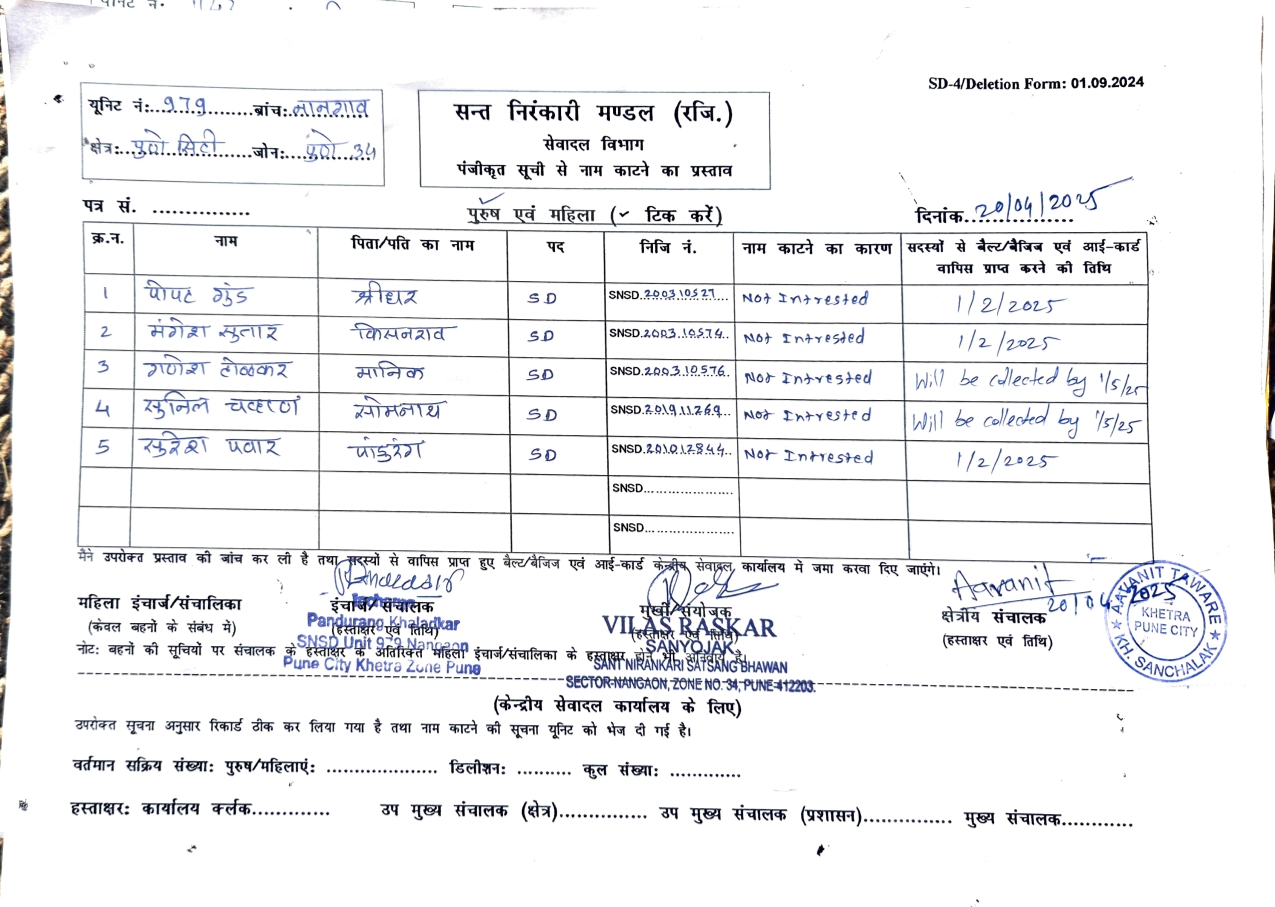 SD-4/Deletion Form: 01.09.2024
यूनिट नं:...979.........ब्रांच:.नानगाव
क्षेत्र:..पुणे सिटी......जोन:....पुणे 34
सन्त निरंकारी मण्डल (रजि.)
सेवादल विभाग
पंजीकृत सूची से नाम काटने का प्रस्ताव
पत्र सं. ...............
पुरुष एवं महिला (✓ टिक करें)
दिनांक..20/04/2025
क्र.न. नाम पिता/पति का नाम पद निजि नं. नाम काटने का कारण सदस्यों से बैल्ट/बैजिज एवं आई-कार्ड वापिस प्राप्त करने की तिथि
1 पोपट गुंड श्रीधर SD SNSD.200310527... Not Intrested 1/2/2025
2 मंगेश सुतार किसनराव SD SNSD.200310574.. Not Intrested 1/2/2025
3 गणेश होळकर मानिक SD SNSD.200310576. Not Intrested Will be collected by 1/5/25
4 सुनिल चव्हाण सोमनाथ SD SNSD.201911269... Not Intrested Will be collected by 1/5/25
5 सुरेश पवार पांडुरंग SD SNSD.201012844.. Not Intrested 1/2/2025
SNSD.....................
SNSD.....................
मैंने उपरोक्त प्रस्ताव की जांच कर ली है तथा सदस्यों से वापिस प्राप्त हुए बैल्ट/बैजिज एवं आई-कार्ड केन्द्रीय सेवादल कार्यालय में जमा करवा दिए जाएंगे।
महिला इंचार्ज/संचालिका
(केवल बहनों के संबंध में)
इंचार्ज/संचालक
(हस्ताक्षर एवं तिथि)
Incharge
Pandurang Khaladkar
SNSD Unit 979 Nangaon
Pune City Khetra Zone Pune
मुखी/संयोजक
(हस्ताक्षर एवं तिथि)
VILAS RASKAR
SANYOJAK
SANT NIRANKARI SATSANG BHAWAN
SECTOR-NANGAON, ZONE NO. 34, PUNE-412203.
Aavanit
20/04/2025
क्षेत्रीय संचालक
(हस्ताक्षर एवं तिथि)
AAVANIT TAWARE
KHETRA
PUNE CITY
KH. SANCHALAK
नोट: बहनों की सूचियों पर संचालक के हस्ताक्षर के अतिरिक्त महिला इंचार्ज/संचालिका के हस्ताक्षर होने भी अनिवार्य है।
(केन्द्रीय सेवादल कार्यालय के लिए)
उपरोक्त सूचना अनुसार रिकार्ड ठीक कर लिया गया है तथा नाम काटने की सूचना यूनिट को भेज दी गई है।
वर्तमान सक्रिय संख्या: पुरुष/महिलाएं: .................... डिलीशन: .......... कुल संख्या: .............
हस्ताक्षर: कार्यालय क्लर्क.............. उप मुख्य संचालक (क्षेत्र)................ उप मुख्य संचालक (प्रशासन)................ मुख्य संचालक............